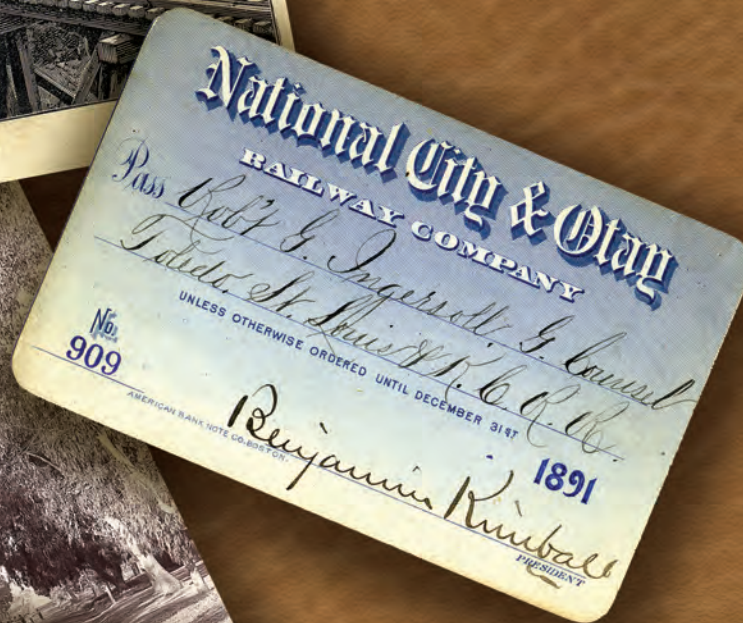 National City & Otay
RAILWAY COMPANY
Pass Rob't G. Ingersoll, G. Counsel
Toledo, St. Louis & K. C. R. R.
UNLESS OTHERWISE ORDERED UNTIL DECEMBER 31ST
No. 909
1891
AMERICAN BANK NOTE CO. BOSTON.
Benjamin Kimball
PRESIDENT